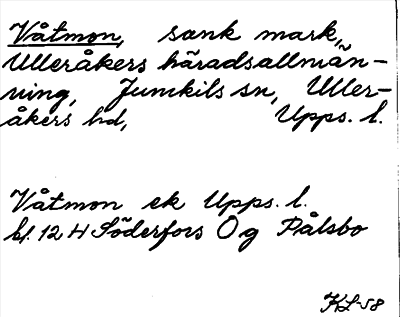 Våtmon, sank mark,
Ulleråkers häradsallmän-
ning, Jumkils sn, Uller-
åkers hd, Upps. l.
Våtmon ek Upps. l.
bl. 12 H Söderfors Og Pålsbo
KL-58